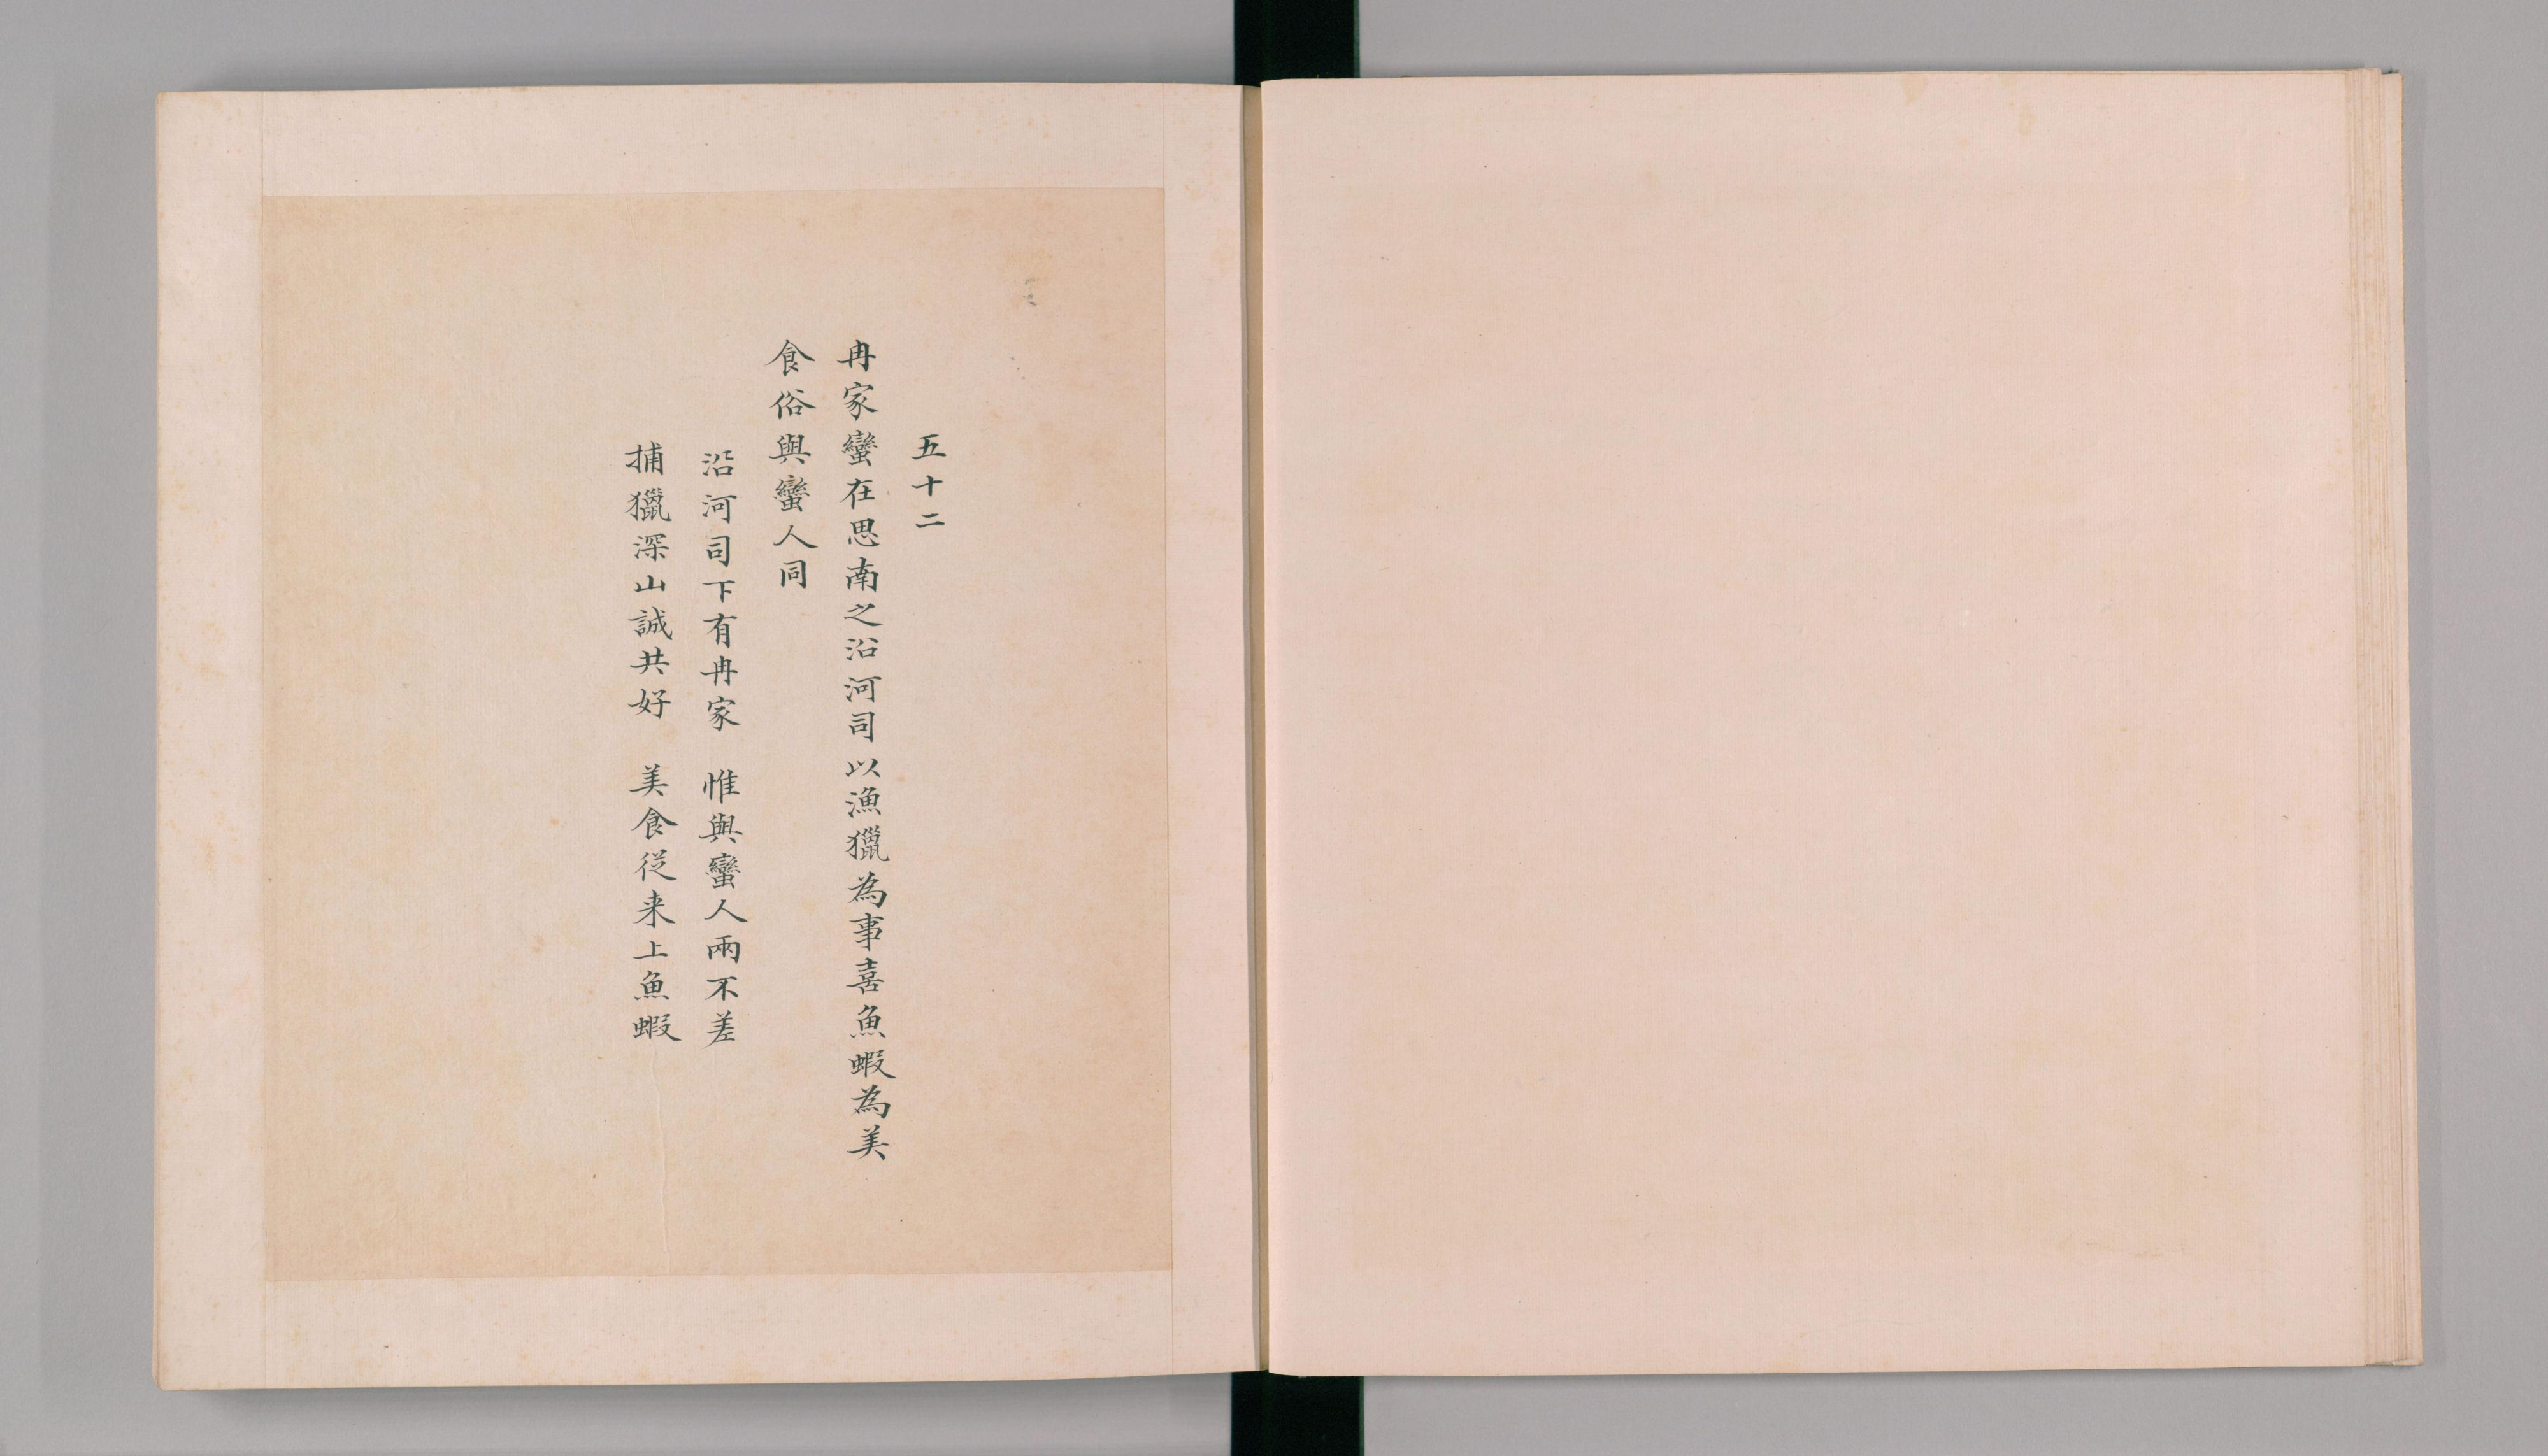 五十二
冉家蠻在思南之沿河司以漁獵為事喜魚蝦為美
食俗與蠻人同
沿河司下有冉家　惟與蠻人兩不差
捕獵深山誠共好　美食從来上魚蝦